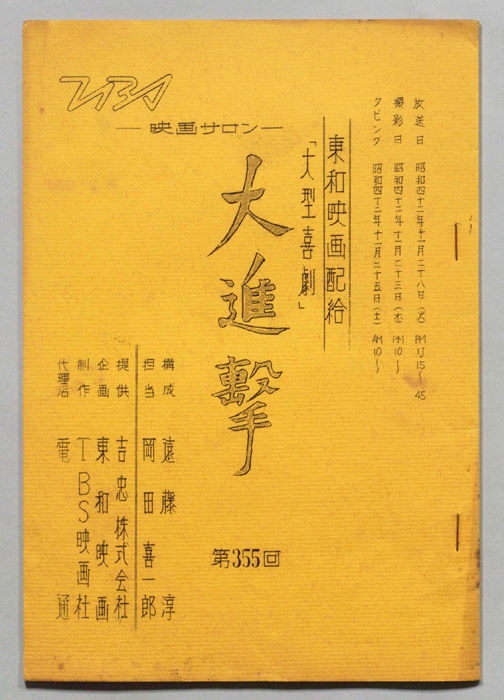 TBS
―映画サロン―
放送日 昭和四十二年十一月二十八日（火） PM 11 15～45
撮影日 昭和四十二年十一月二十三日（木） PM 10～
ダビング 昭和四十二年十一月二十五日（土） AM 10～
東和映画配給
「大型喜劇」
大進撃
第355回
構成 遠藤淳
担当 岡田喜一郎
提供 吉忠株式会社
企画 東和映画
制作 TBS映画社
代理店 電通